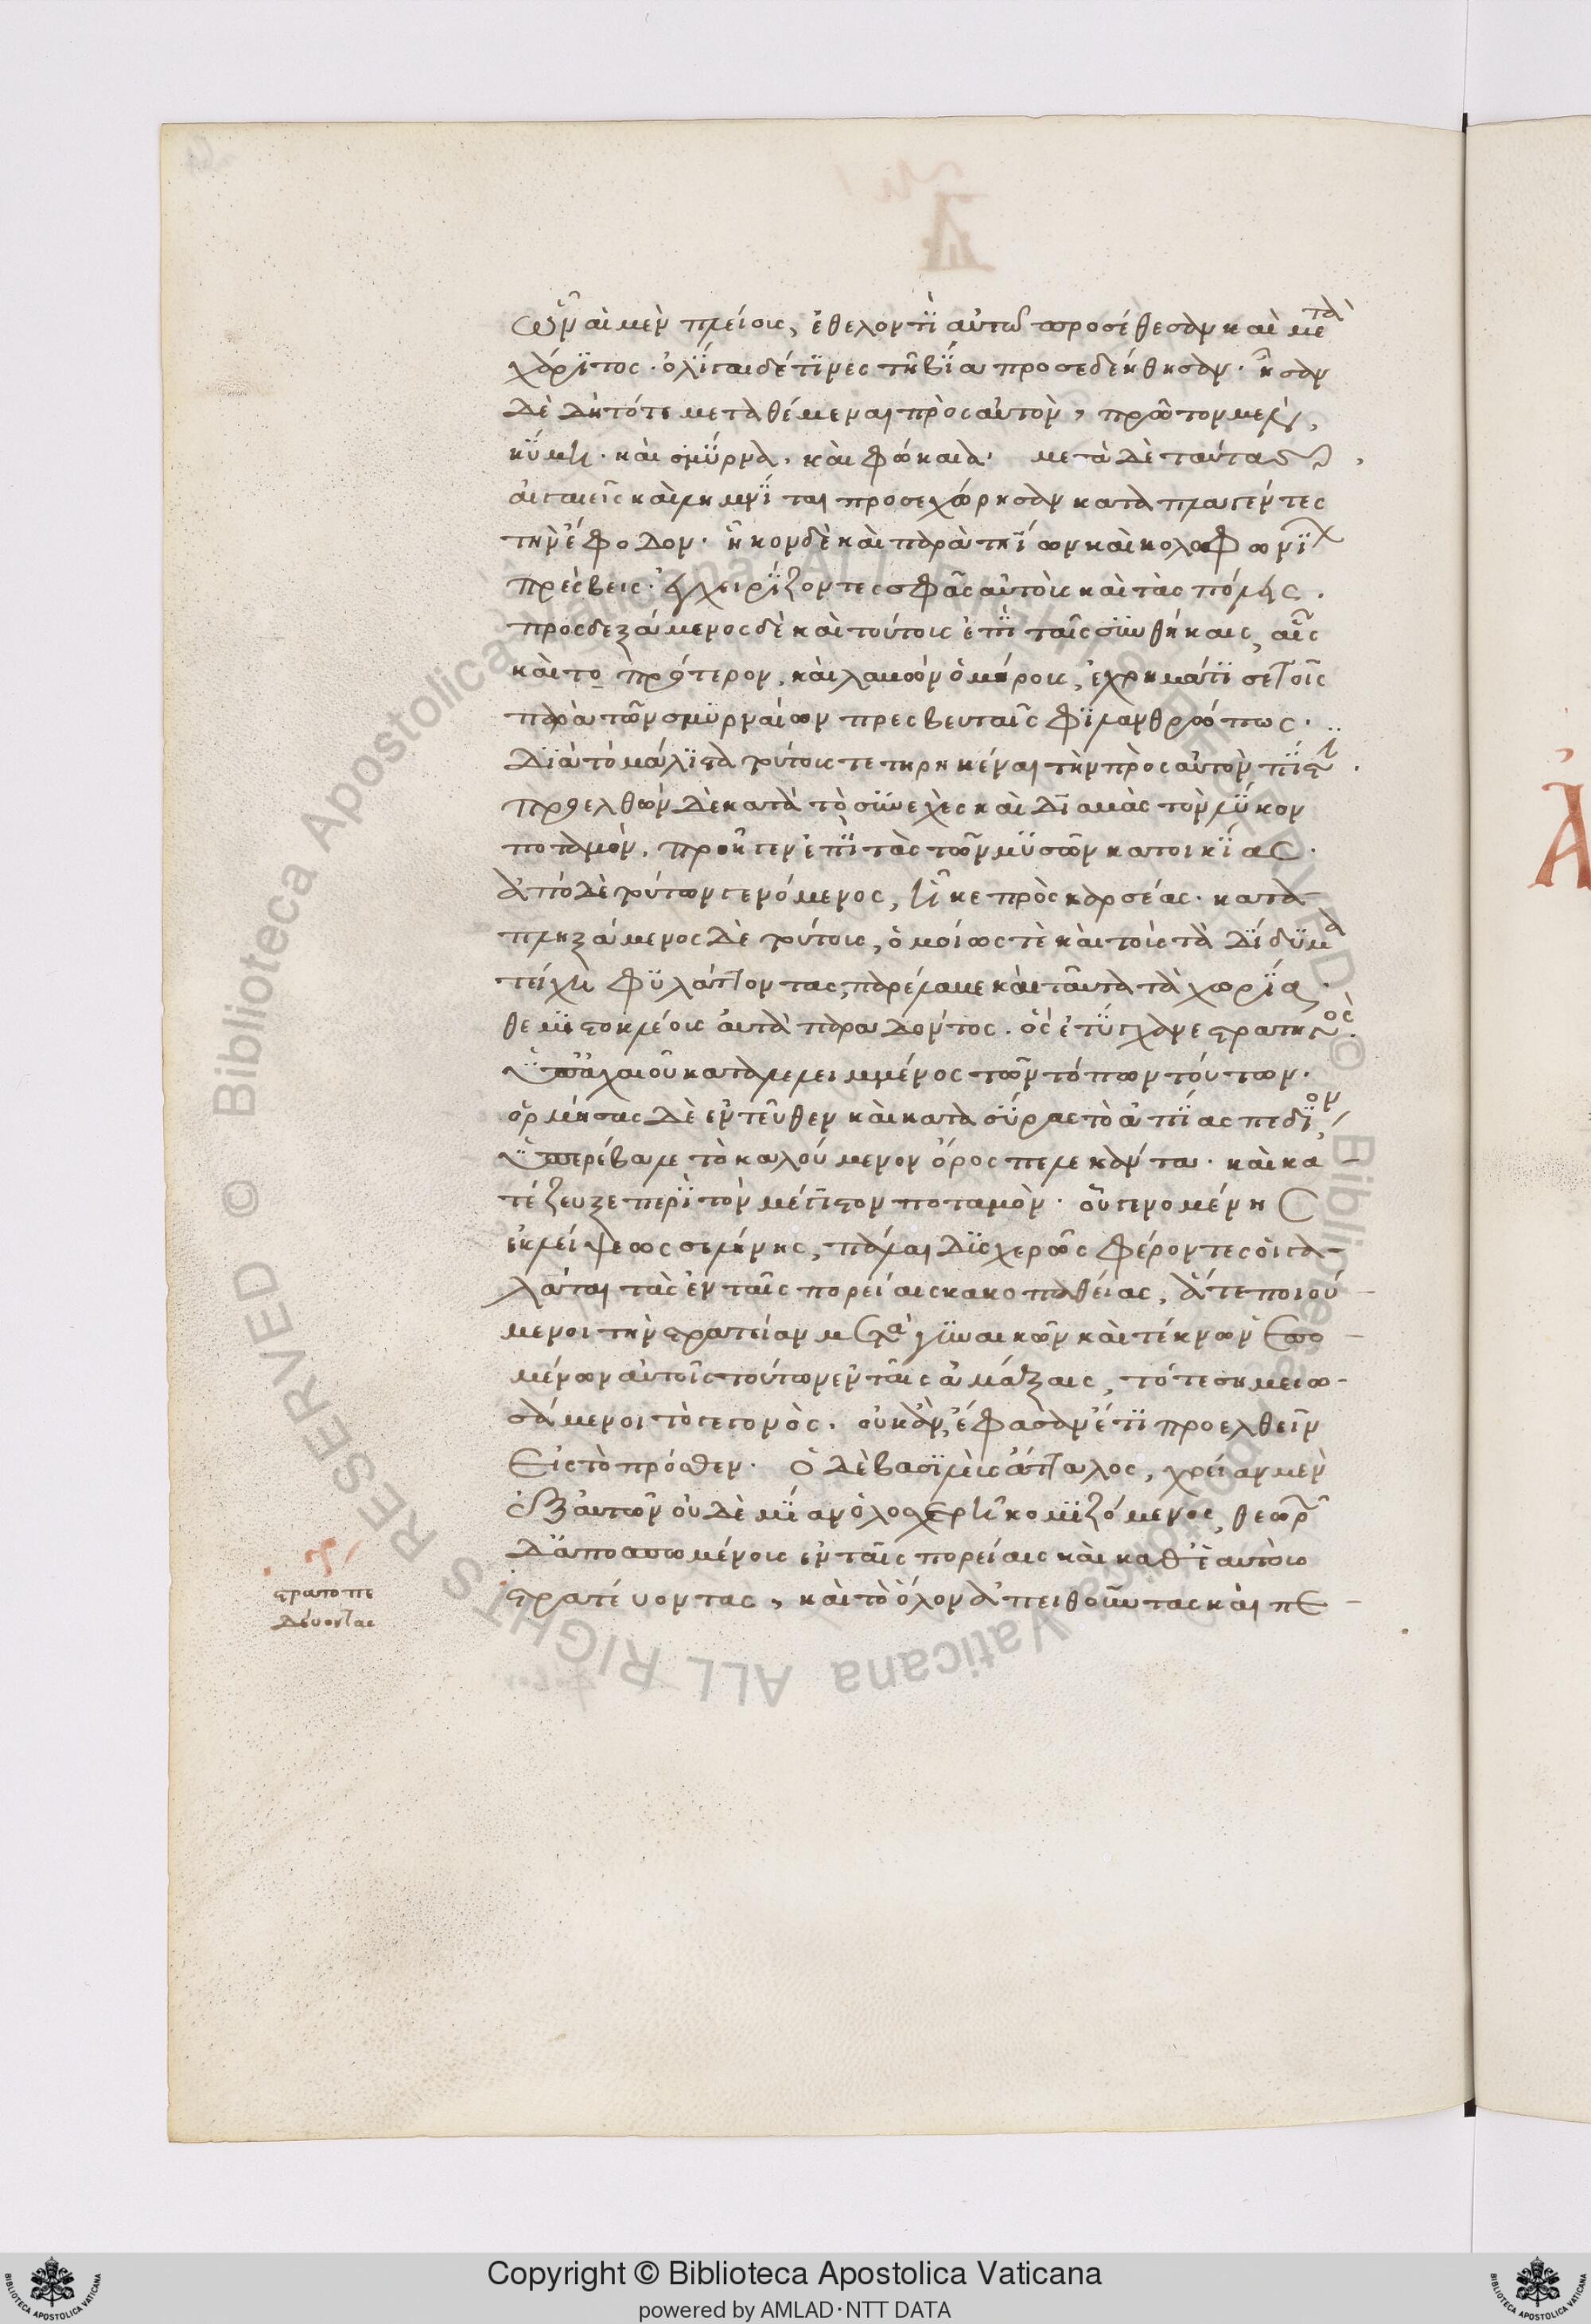 ὧν αἱ μὲν πλείους, ἐθελοντὶ αὐτῶ προσέθεσαν καὶ μετὰ
χάριτος· ὀλίγαι δέ τινες τῆ βία προσεδεήθησαν· ἦσαν
δὲ δὴ τότε μεταθέμεναι πρὸς αὐτὸν, πρῶτον μὲν,
κύμη· καὶ σμύρνα, καὶ φώκαια· μετὰ δὲ ταύτας,
αἰγαιεῖς καὶ λημνῖται προσεχώρησαν καταπλαγέντες
τὴν ἔφοδον· ἧκον δὲ καὶ παρὰ τηΐων καὶ κολοφωνίων
πρέσβεις· ἐγχειρίζοντες σφᾶς αὐτοὺς καὶ τὰς πόλεις.
προσδεξάμενος δὲ καὶ τούτους ἐπὶ ταῖς συνθήκαις, αἷς
καὶ το πρότερον, καὶ λαβὼν ὁμήρους, ἐχρημάτισε τοῖς
παρὰ τῶν σμυρναίων πρεσβευταῖς φιλανθρώπως·
διὰ τὸ μάλιστα τούτους τετηρηκέναι τὴν πρὸς αὐτὸν πίστιν.
προελθὼν δὲ κατὰ τὸ συνεχὲς καὶ διαβὰς τὸν λύκον
ποταμὸν, προῆγεν ἐπὶ τὰς τῶν μυσῶν κατοικίας·
ἀπὸ δὲ τούτων γενόμενος, ἧκε πρὸς καρσέας· κατα
πληξάμενος δὲ τούτους, ὁμοίως τὲ καὶ τοὺς τὰ δίδυμα
τείχη φυλάττοντας, παρέλαβε καὶ ταῦτα τὰ χωρία·
θεμιστοκλέους αὐτὰ παραδόντος. ὃς ἐτύγχανε στρατηγὸς
ὑπ ἀχαιοῦ καταλελειμμένος τῶν τόπων τούτων.
ὁρμήσας δὲ ἐντεῦθεν καὶ κατασύρας τὸ ἀπίας πεδίον,
ὑπερέβαλε τὸ καλούμενον ὄρος πελεκάντα· καὶ κα-
τέζευξε περὶ τὸν μέγιστον ποταμὸν· οὗ γενομένης
ἐκλείψεως σελήνης, πάλαι δυσχερῶς φέροντες οἱ γα-
λάται τὰς ἐν ταῖς πορείαις κακοπαθείας, ἅτε ποιού-
μενοι τὴν στρατείαν μετὰ γυναικῶν καὶ τέκνων ἑπο-
μένων αὐτοῖς τούτων ἐν ταῖς ἁμάξαις, τότε σημειω-
σάμενοι τὸ γεγονὸς· οὐκ ἂν, ἔφασαν ἔτι προελθεῖν
εἰς τὸ πρόσθεν· ὁ δὲ βασιλεὺς ἄτταλος, χρείαν μὲν
ἐξ αὐτῶν οὐδεμίαν ὁλοσχερῆ κομιζόμενος, θεωρῶν
δ' ἀποσπωμένους ἐν ταῖς πορείαις καὶ καθ' ἑαυτοὺς
στρατεύοντας, καὶ τὸ ὅλον ἀπειθοῦντας καὶ πε-
στρατοπε
δεύοντας